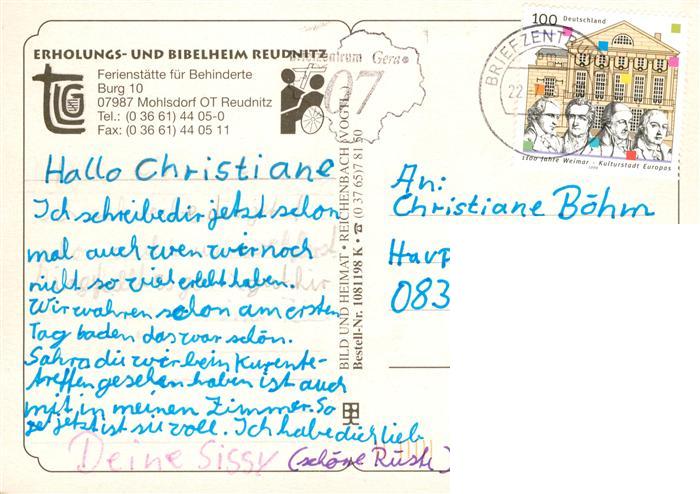 ERHOLUNGS- UND BIBELHEIM REUDNITZ
Ferienstätte für Behinderte
Burg 10
07987 Mohlsdorf OT Reudnitz
Tel.: (0 36 61) 44 05-0
Fax: (0 36 61) 44 05 11
Hallo Christiane
Ich schreibe dir jetzt schon
mal auch wen wir noch
nicht so viel erlebt haben.
Wir wahren schon am ersten
Tag baden das war schön.
Sahra die wir bein Kurente-
treffen gesehen haben ist auch
mit in meinen Zimmer. So
jetzt ist sie voll. Ich habe dich lieb
Deine Sissy (schöne Rüste)
BILD UND HEIMAT • REICHENBACH (VOGTL)
Bestell-Nr. 1081198 K • ☎ (0 37 65) 7 81 50
Briefzentrum Gera
07
BRIEFZENTRUM
22
100 Deutschland
1100 Jahre Weimar - Kulturstadt Europas
1999
An:
Christiane Böhm
Haup
083